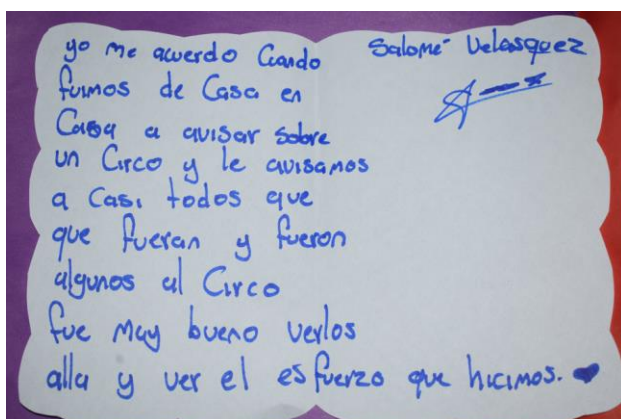 yo me acuerdo Cuando
Salomé Velasquez
fuimos de Casa en
Casa a avisar sobre
un Circo y le avisamos
a Casi todos que
que fueran y fueron
algunos al Circo
fue muy bueno verlos
alla y ver el esfuerzo que hicimos.